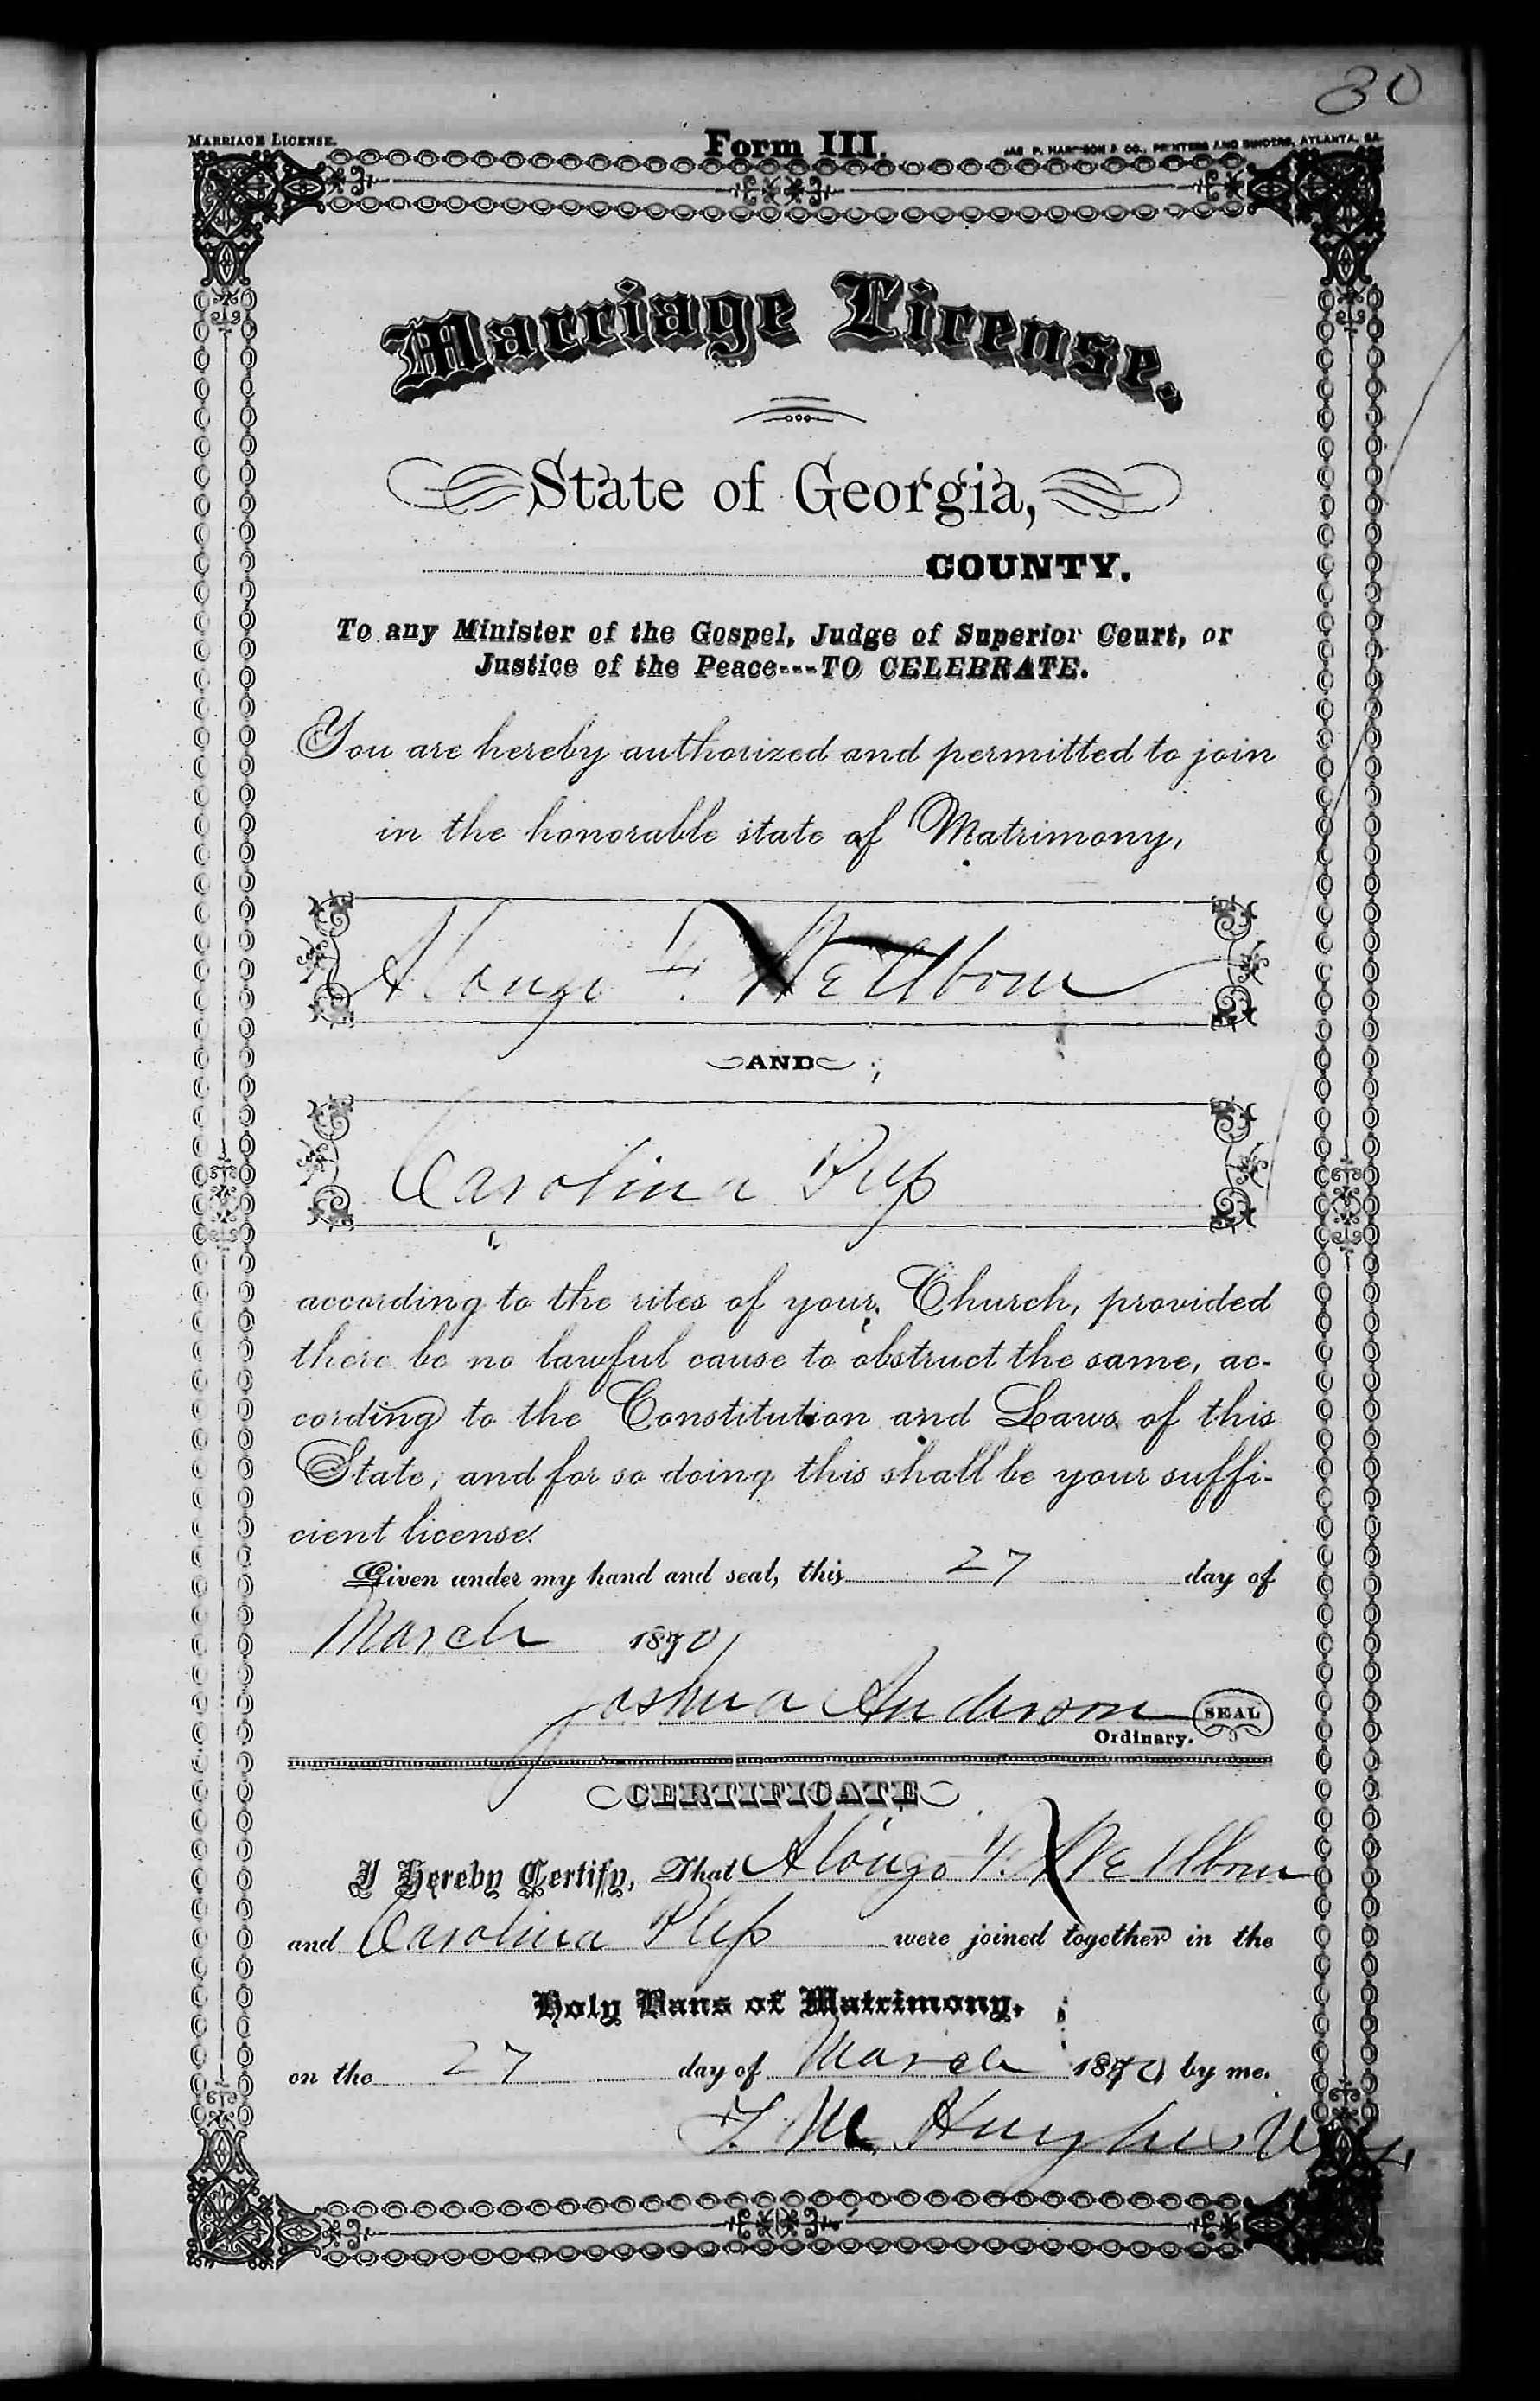 30
MARRIAGE LICENSE.
Form III.
JAS. P. HARRISON & CO., PRINTERS AND BINDERS, ATLANTA, GA.
Marriage License.
State of Georgia,
COUNTY.
To any Minister of the Gospel, Judge of Superior Court, or
Justice of the Peace---TO CELEBRATE.
You are hereby authorized and permitted to join
in the honorable state of Matrimony,
Alonzo F. Wellborn
AND
Carolina Pless
according to the rites of your Church, provided
there be no lawful cause to obstruct the same, ac-
cording to the Constitution and Laws of this
State; and for so doing this shall be your suffi-
cient license.
Given under my hand and seal, this 27 day of
March 1870
Joshua Anderson SEAL
Ordinary.
CERTIFICATE
I Hereby Certify, That Alonzo F. Wellborn
and Carolina Pless were joined together in the
Holy Bans of Matrimony,
on the 27 day of March 1870 by me.
F. M. Hughes